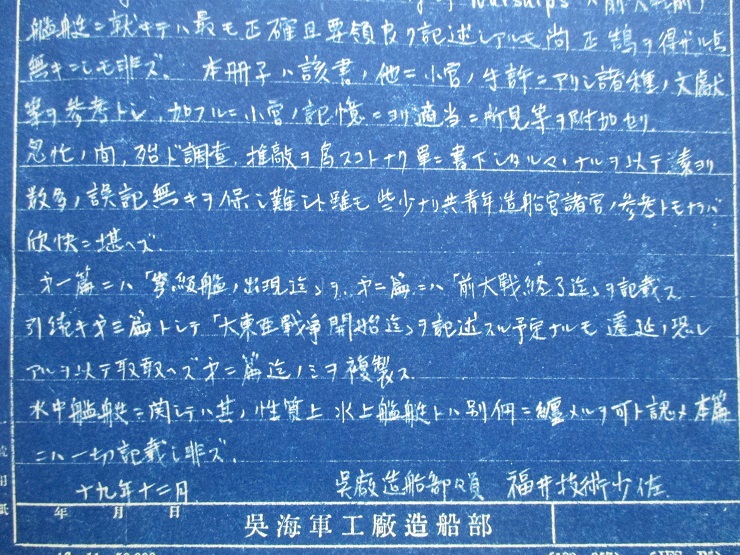 Warships 前大戦前)
艦艇ニ就キテハ最モ正確且要領良ク記述シアルモ尚正鵠ヲ得ザル点
無キニシモ非ズ. 本冊子ハ該書ノ他ニ小官ノ手許ニアリシ諸種ノ文獻
等ヲ参考トシ、加フルニ小官ノ記憶ニヨリ適当ニ所見等ヲ附加セリ.
怱忙ノ間, 殆ド調査, 推敲ヲ爲スコトナク單ニ書下シタルマヽナルヲ以テ 素ヨリ
数多ノ誤記無キヲ保シ難シト雖モ 些少ナリ共青年造船官諸官ノ参考トモナラバ
欣快ニ堪ヘズ.
才一篇ニハ「弩級艦ノ出現迄」ヲ, 才二篇ニハ「前大戰終了迄」ヲ記載ス
引続キ才三篇トシテ「大東亜戰爭開始迄」ヲ記述スル予定ナルモ 遷延ノ恐レ
アルヲ以テ取敢ヘズ才二篇迄ノミヲ複製ス.
水中艦艇ニ関シテハ其ノ性質上 水上艦艇トハ別個ニ纏メルヲ可ト認メ本篇
ニハ一切記載シ非ズ.
十九年十二月 呉廠造船部々員 福井技術少佐.
年 月 日
吳海軍工廠造船部
用紙